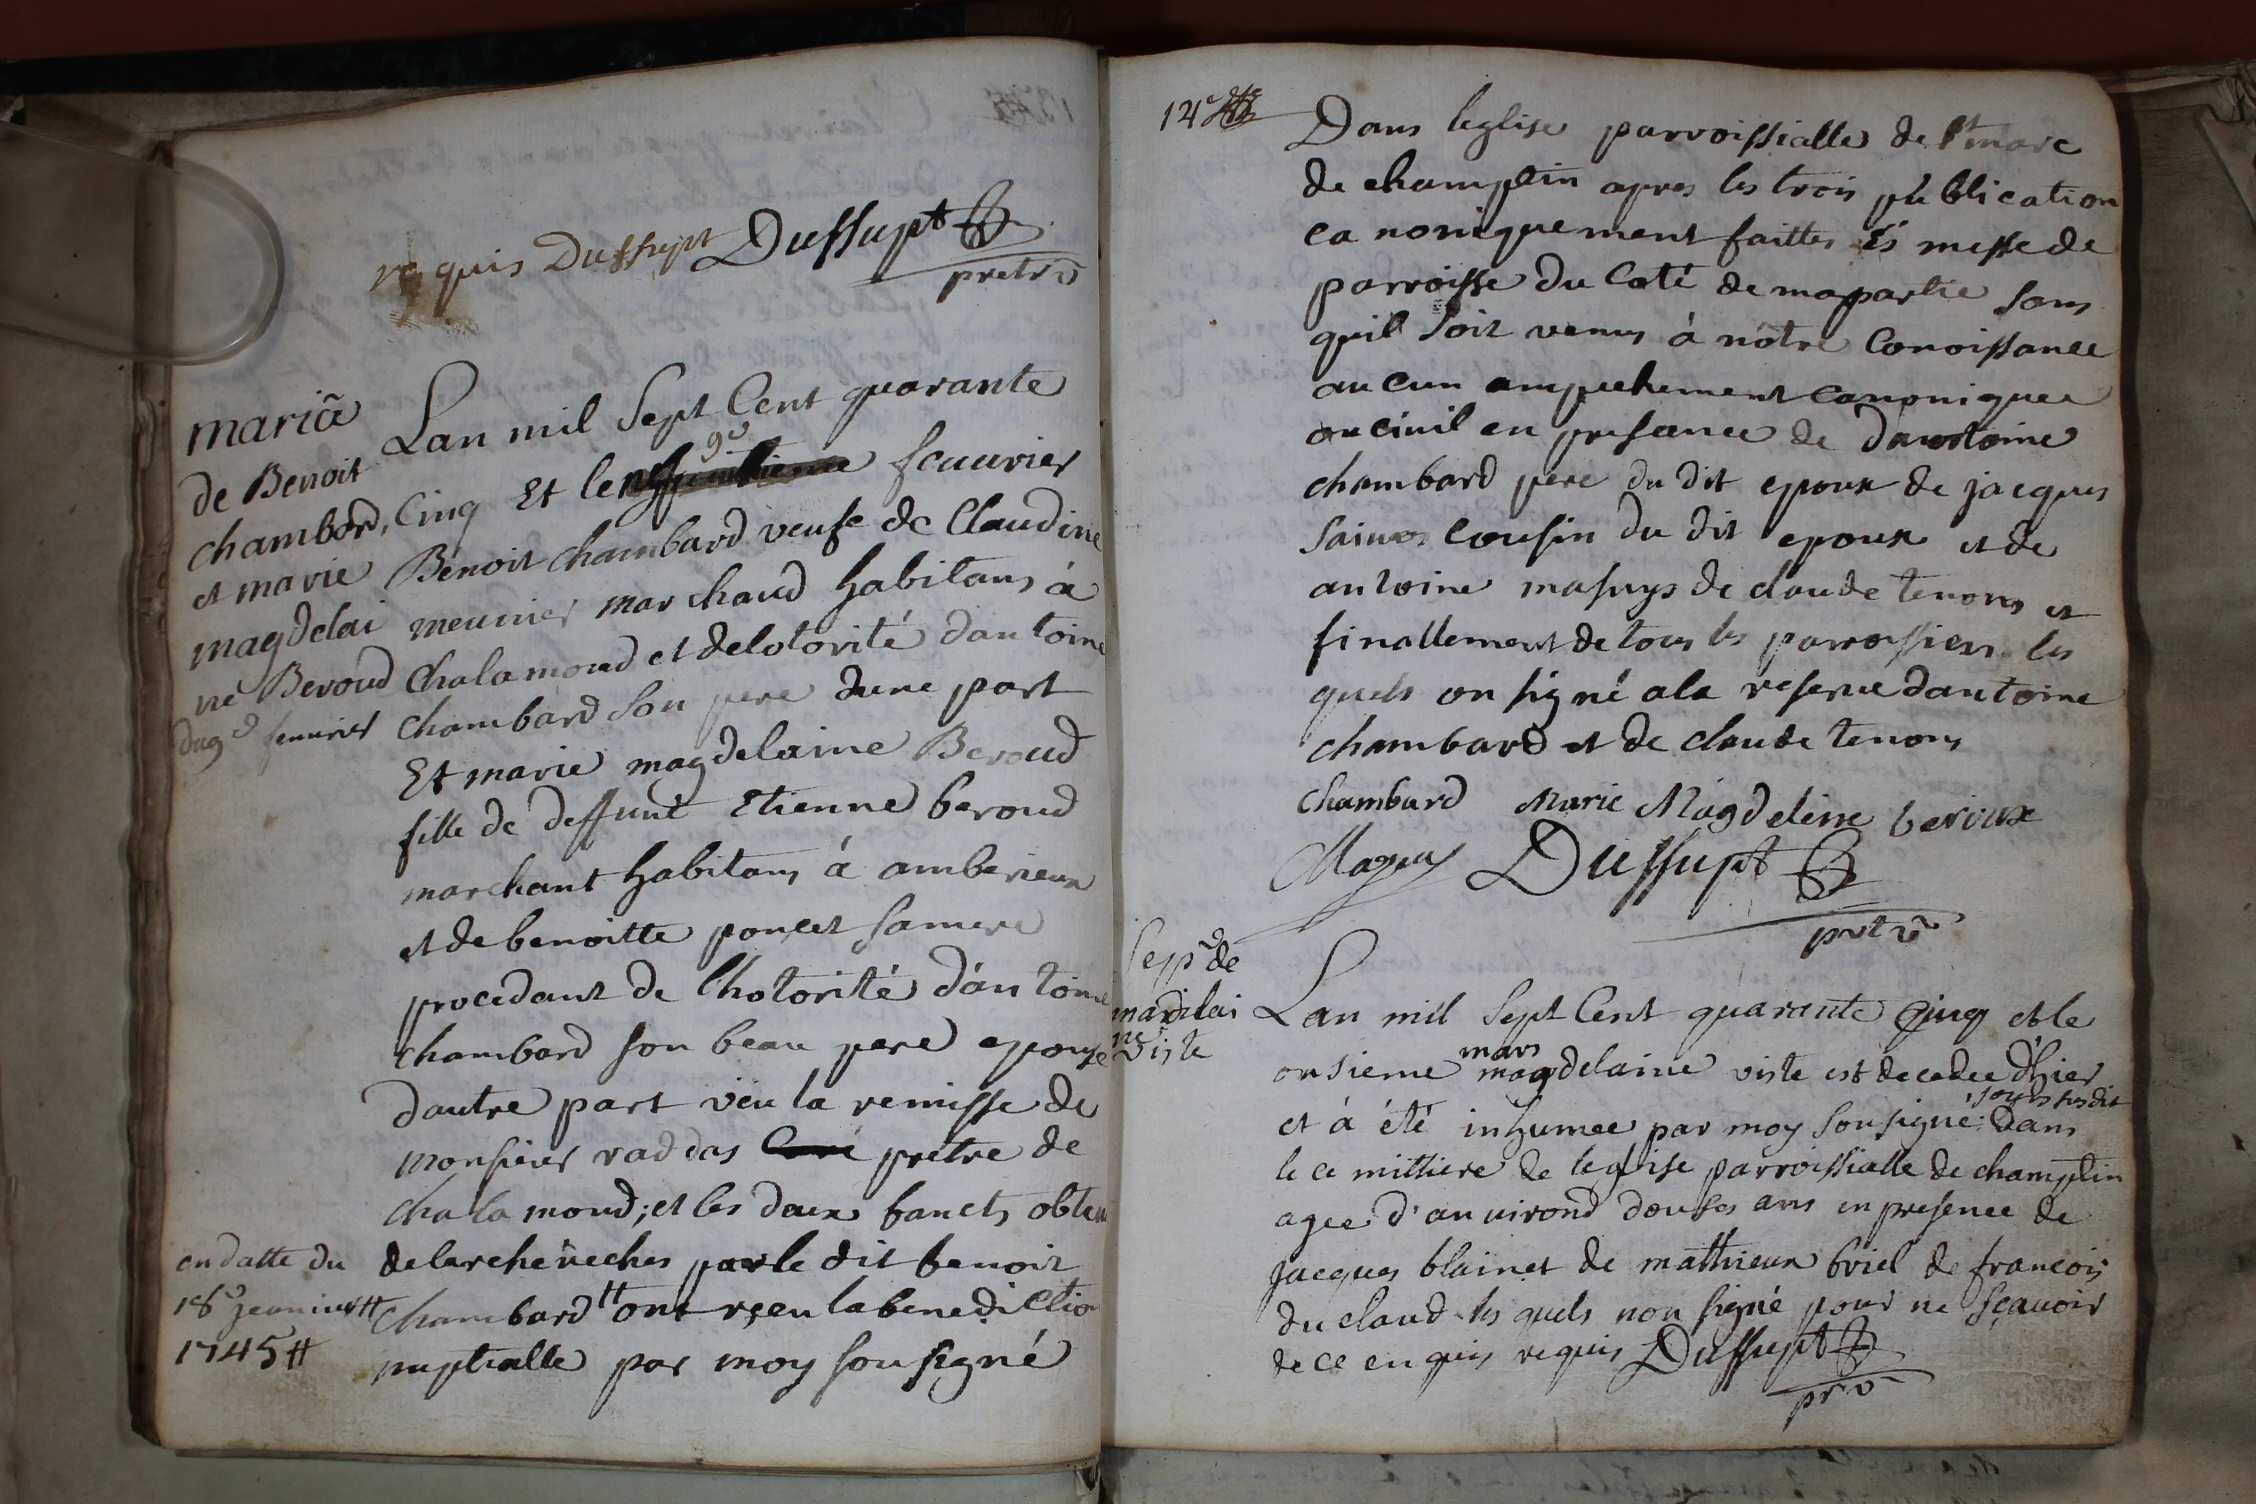 requis Dussupt Dussupt
pretre
mariã
de Benoit
chambard,
et marie
magdelai
ne Beroud
du 9e feuurier
Lan mil Sept Cent quarante
Cinq Et le 9e feuurier
Benoit chambard veufe de Claudine
meunier marchaud habitans à
Chalamoud et delotorité dantoine
chambard son pere dune part
Et marie magdelaine Beroud
fille de deffunt Etienne beroud
marchant habitans à amberieux
et de benoitte poncet samere
procedant de lhotorité dántoine
chambard son beau pere epouse
dautre part vëu la remisse de
monsieur raddas Curé pretre de
chalamoud; et les deux banets obtenu
delarcheveches parle dit benoit
chambard # ont reçeu labenediction
nuptialle par moy sousigné
en datte du
18e jeanuier #
1745 #
14e
Dans leglise parroissialle de St marc
de champlin apres les trois publication
canoniquement faittes És messe de
parroisse du Coté de mapartie sans
quil soit venus à nôtre Conoissance
aucun ampechement canonique
ou ciuil en presence de dantoine
chambard pere du dit epoux de jacques
cousin du dit epoux et de
antoine masuys de claude tenons et
finallement de tous les parroissien les
quels on signé ala reserue dantoine
chambard et de claude tenons
Chambard Marie Magdeleine beroux
Mazuy Dussupt
pretre
Sepr̃e de
magdelai
ne viste
Lan mil Sept Cent quarante Cinq et le
onsieme mars magdelaine viste est decedee d'hier
et à été inhumee par moy sousigné: jour susdit Dans
le cemittiere de leglise parroissialle de champlin
agee d'anuirond douses ans en presence de
jacques blainet de matthieux briel de francois
du claud les quels non signé pour ne sçauoir
de ce enquis requis Dussupt
pre